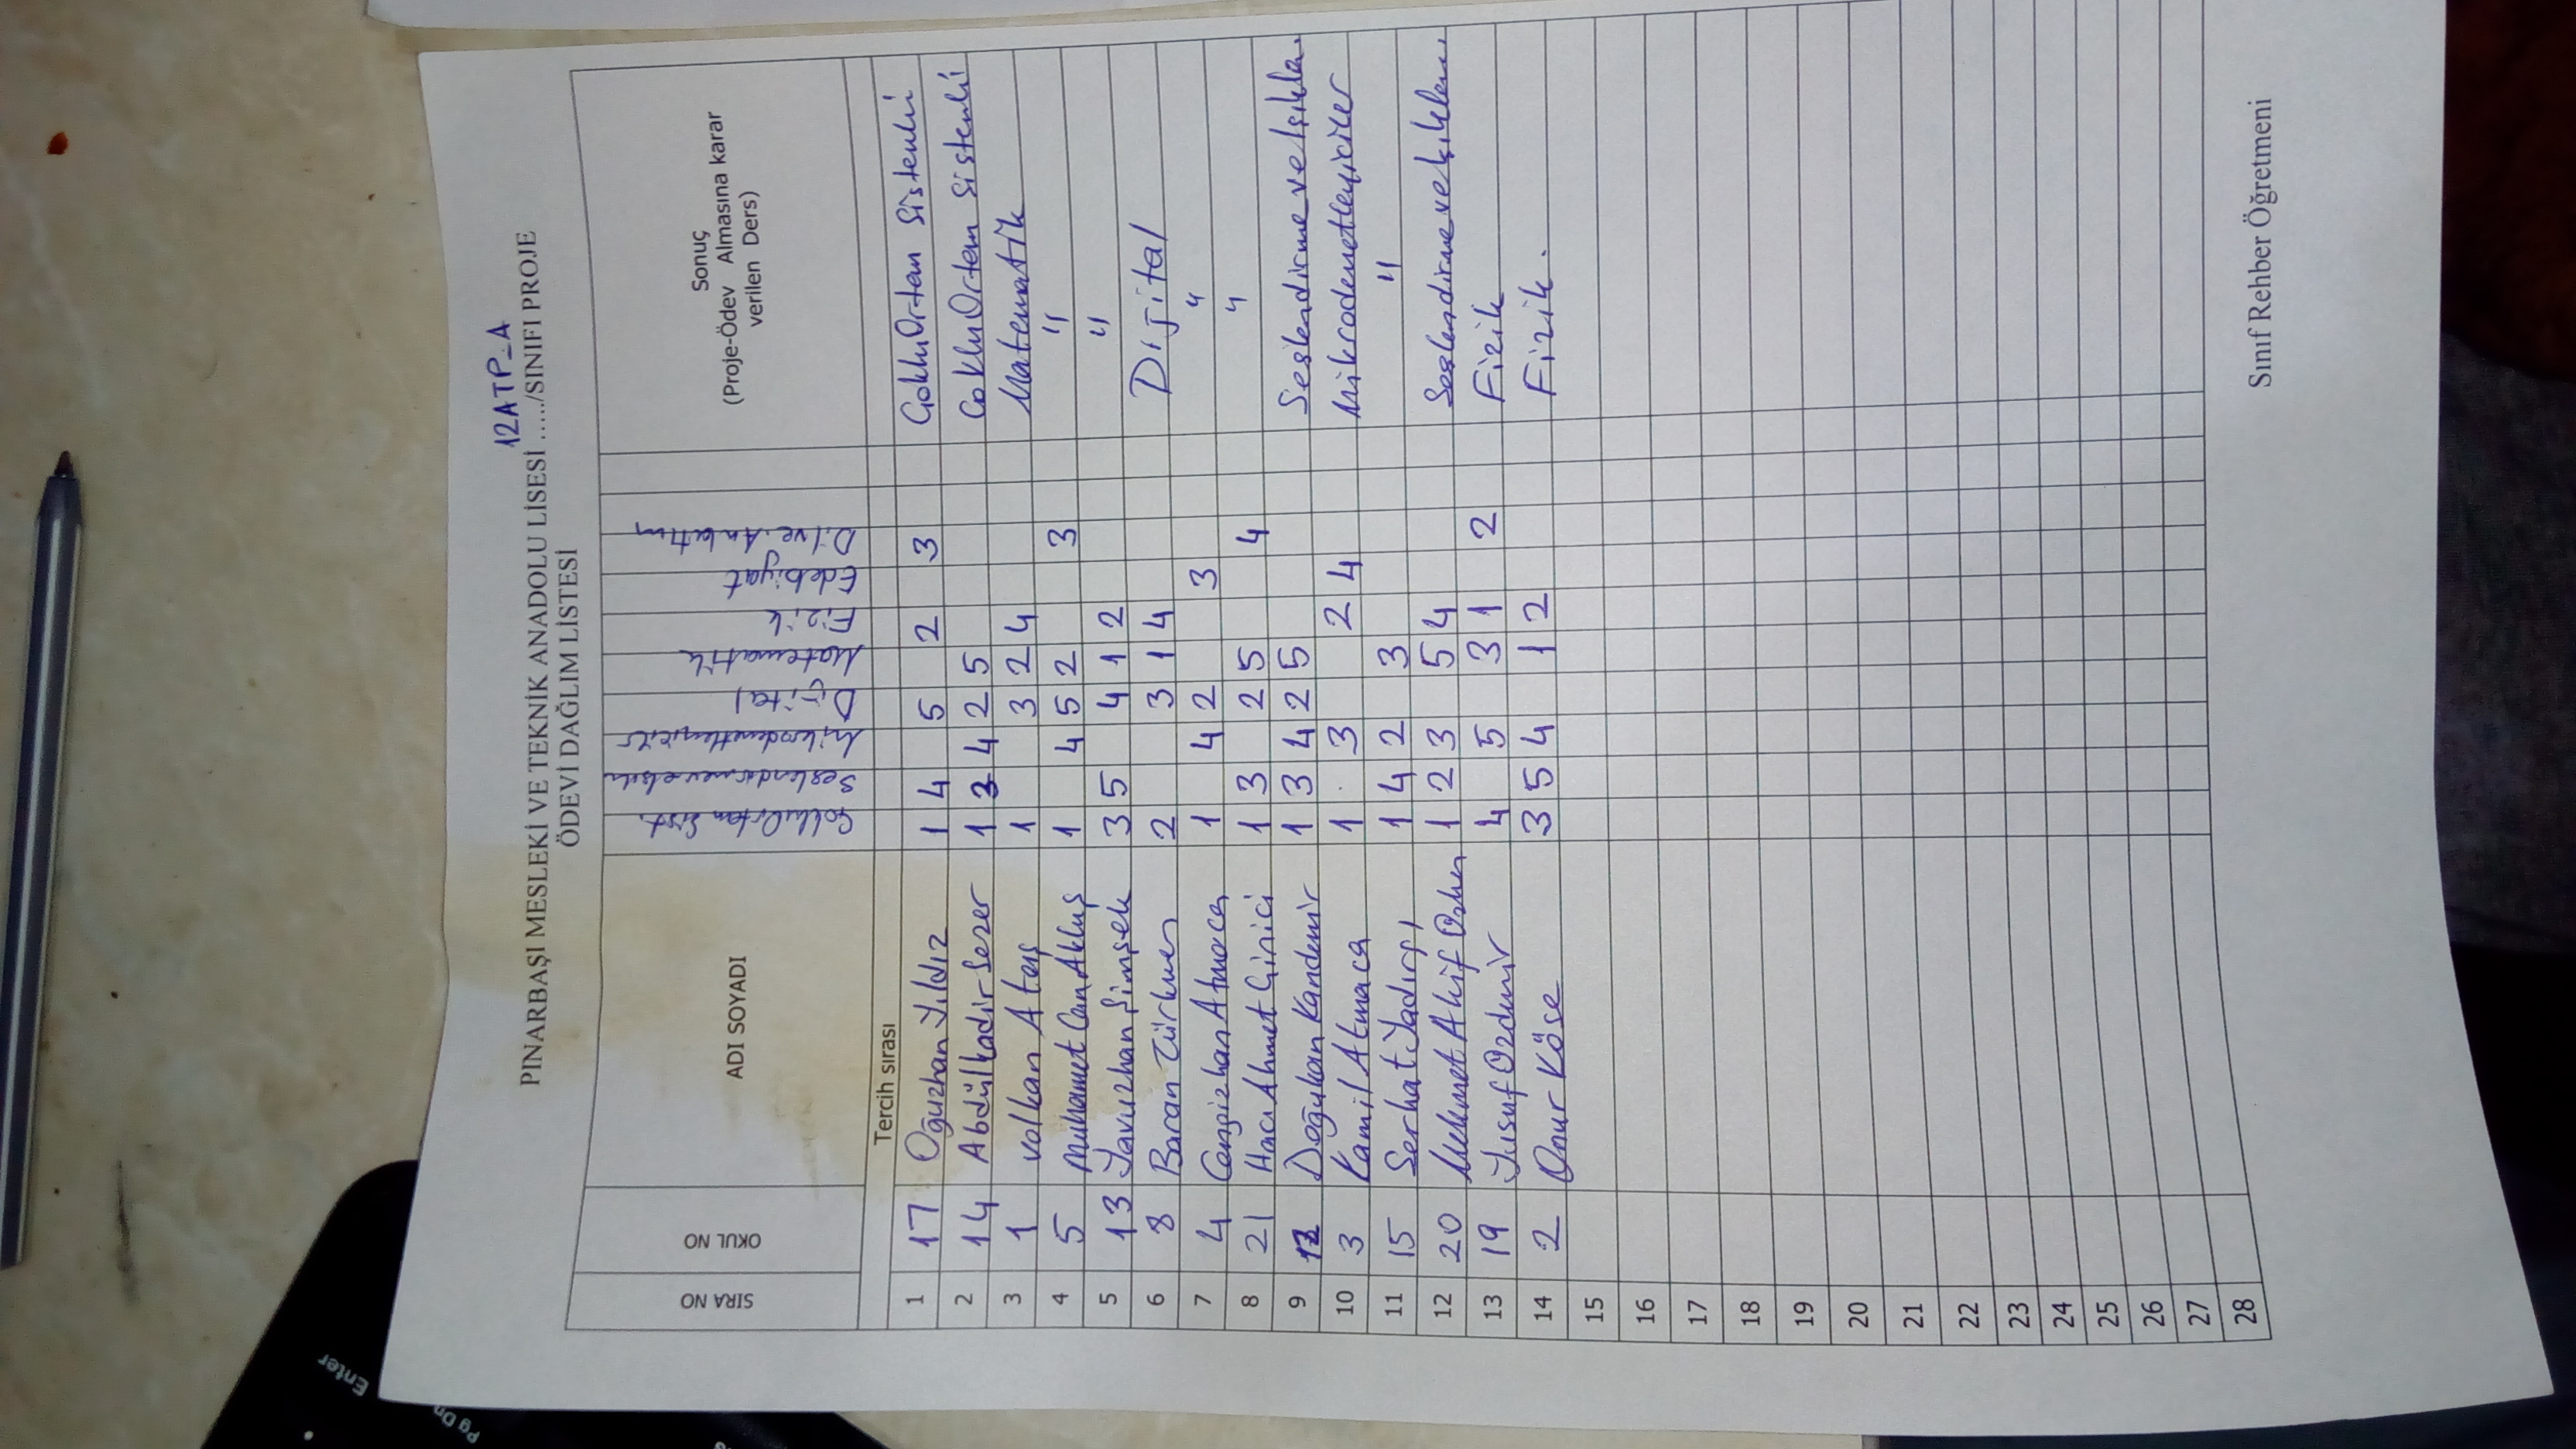 12ATP-A
PINARBAŞI MESLEKİ VE TEKNİK ANADOLU LİSESİ ...../SINIFI PROJE
ÖDEVİ DAĞLIM LİSTESİ
SIRA NO OKUL NO ADI SOYADI Çoklu Ortam Sist. Seslendirme ve Işık Mikrodenetleyiciler Dijital Matematik Fizik Edebiyat Dil ve Anlatım Sonuç
(Proje-Ödev Almasına karar
verilen Ders)
Tercih sırası
1 17 Oğuzhan Yıldız 1 4 5 2 3 Çoklu Ortam Sistemli
2 14 Abdülkadir Sezer 1 3 4 2 5 Çoklu Ortam Sistemli
3 1 Volkan Ateş 1 3 2 4 Matematik
4 5 Muhammet Can Akkuş 1 4 5 2 3 "
5 13 Yavuzhan Şimşek 3 5 4 1 2 "
6 8 Baran Türkmen 2 3 1 4 Dijital
7 4 Cengizhan Atmaca 1 4 2 3 "
8 21 Hacı Ahmet Cinici 1 3 2 5 4 "
9 12 Doğukan Kandemir 1 3 4 2 5 Seslendirme ve Işıkla
10 3 Kamil Atmaca 1 3 2 4 Mikrodenetleyiciler
11 15 Serhat Yadırgı 1 4 2 3 "
12 20 Mehmet Akif 1 2 3 5 4 Seslendirme ve Işıklan
13 19 Yusuf Özdemir 4 5 3 1 2 Fizik
14 2 Onur Köse 3 5 4 1 2 Fizik.
15
16
17
18
19
20
21
22
23
24
25
26
27
28
Sınıf Rehber Öğretmeni
Enter
Pg Dn